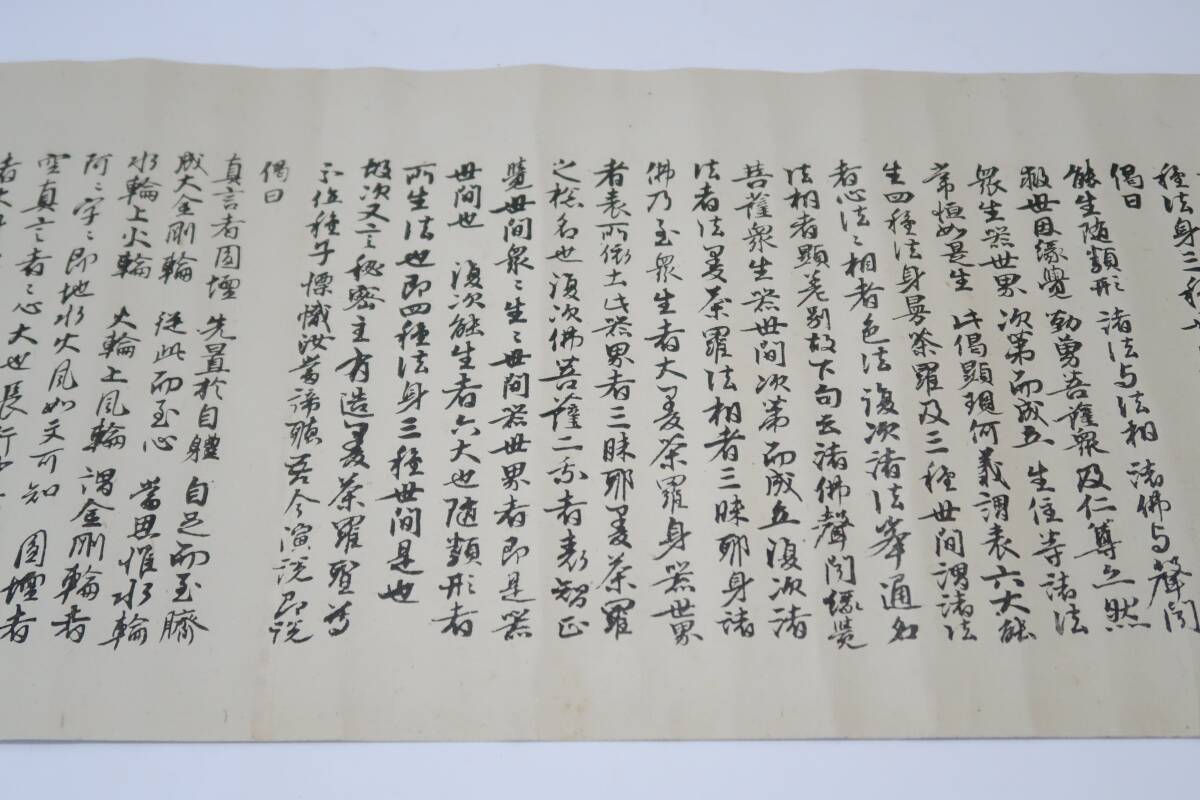 種法身三種
偈曰
能生隨類形 諸法与法相 諸佛与聲聞
救世因緣覺 勤勇菩薩衆 及仁尊亦然
衆生器世界 次第而成立 生住等諸法
常恒如是生 此偈顕現何義謂表六大能
生四種法身曼荼羅及三種世間謂諸法
者心法〻相者色法復次諸法举通名
法相者顕差別故下句云諸佛聲聞緣覺
菩薩衆生器世間次第而成立復次諸
法者法曼荼羅法相者三昧耶身諸
佛乃至衆生者大曼荼羅身器世界
者表所依土此器界者三昧耶曼荼羅
之捴名也復次佛菩薩二乘者表智正
覺世間衆〻生〻世間器世界者即是器
世間也 復次能生者六大也随類形者
所生法也即四種法身三種世間是也
故次又言秘密主有造曼荼羅聖尊
分位種子幖幟汝當諦聽吾今演説即説
偈曰
真言者圓壇 先置於自體 自足而至臍
成大金剛輪 從此而至心 當思惟水輪
水輪上火輪 火輪上風輪 謂金剛輪者
阿〻字〻即地水火風如文可知 圓壇者
空真言者〻心大也長行中